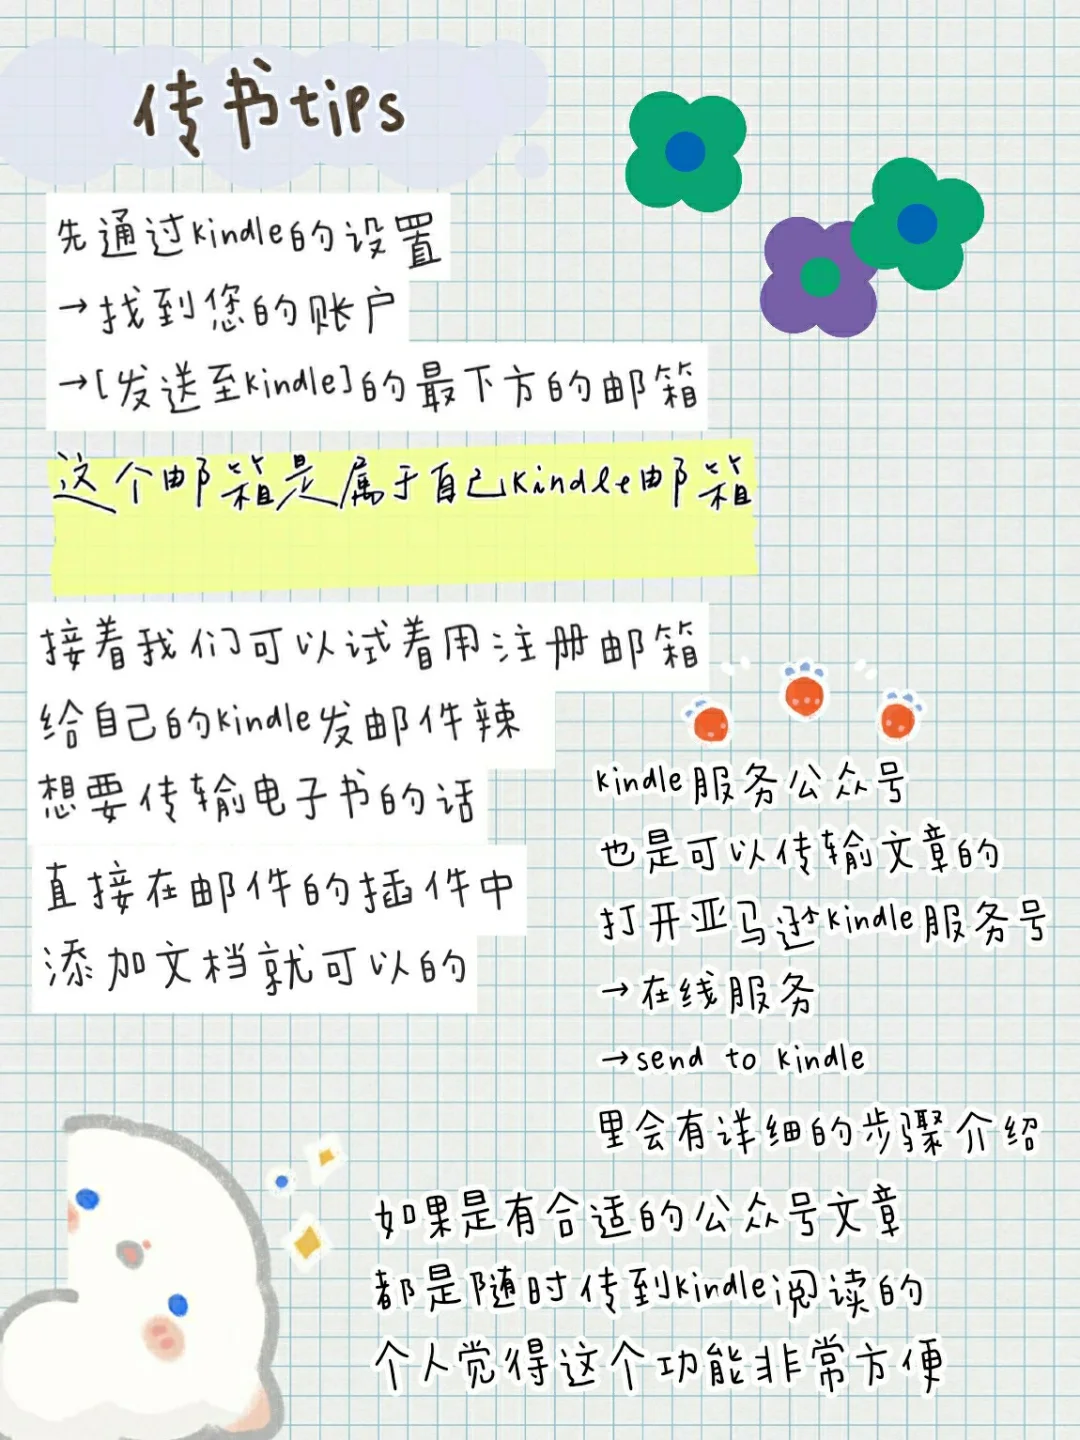 传书tips
先通过kindle的设置
→找到您的账户
→[发送至kindle]的最下方的邮箱
这个邮箱是属于自己kindle邮箱
接着我们可以试着用注册邮箱
给自己的kindle发邮件辣
想要传输电子书的话
直接在邮件的插件中
添加文档就可以的
kindle服务公众号
也是可以传输文章的
打开亚马逊kindle服务号
→在线服务
→send to kindle
里会有详细的步骤介绍
如果是有合适的公众号文章
都是随时传到kindle阅读的
个人觉得这个功能非常方便